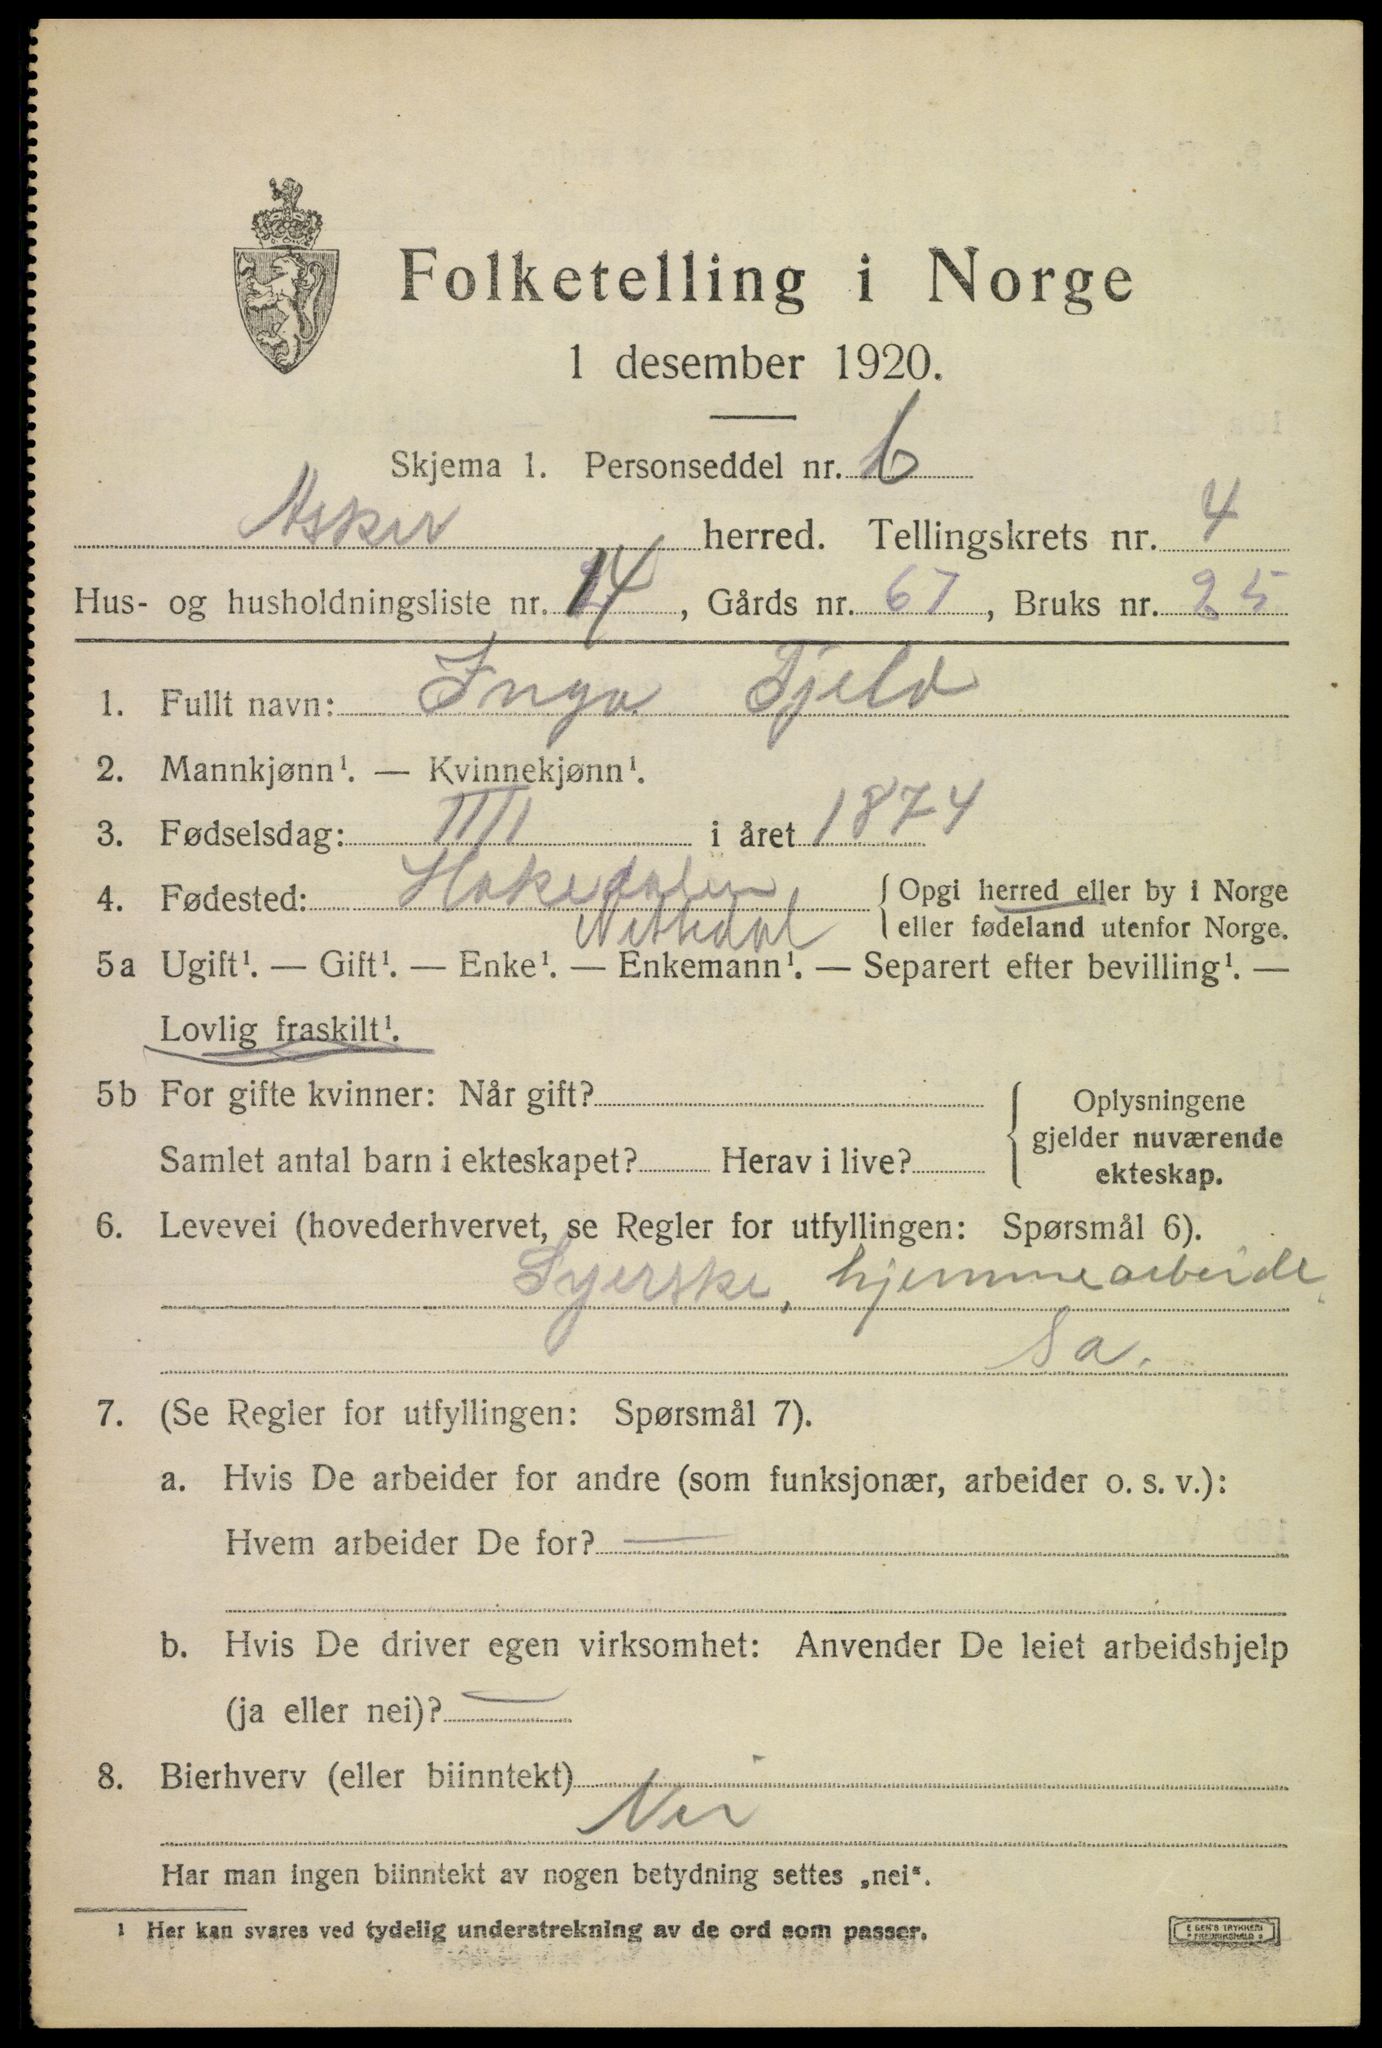 Folketelling i Norge
1 desember 1920.
Skjema 1. Personseddel nr. 6
Asker herred. Tellingskrets nr. 4
Hus- og husholdningsliste nr. 14, Gårds nr. 67, Bruks nr. 25
1. Fullt navn: Inga Fjeld
2. Mannkjønn¹. — Kvinnekjønn¹.
3. Fødselsdag: i året 1874
4. Fødested: Hakedalen, { Opgi herred eller by i Norge
Nittedal eller fødeland utenfor Norge.
5a Ugift¹. — Gift¹. — Enke¹. — Enkemann¹. — Separert efter bevilling¹. —
Lovlig fraskilt¹.
5b For gifte kvinner: Når gift? { Oplysningene
gjelder nuværende
Samlet antal barn i ekteskapet? Herav i live?
ekteskap.
6. Levevei (hovederhvervet, se Regler for utfyllingen: Spørsmål 6).
Syerske, hjemmearbeide
Sa.
7. (Se Regler for utfyllingen: Spørsmål 7).
a. Hvis De arbeider for andre (som funksjonær, arbeider o. s. v.):
Hvem arbeider De for? —
b. Hvis De driver egen virksomhet: Anvender De leiet arbeidshjelp
(ja eller nei)? —
8. Bierhverv (eller biinntekt)
Nei
Har man ingen biinntekt av nogen betydning settes „nei“.
¹ Her kan svares ved tydelig understrekning av de ord som passer.